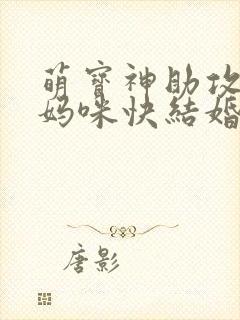 萌寶神助攻
媽咪快結婚
唐影